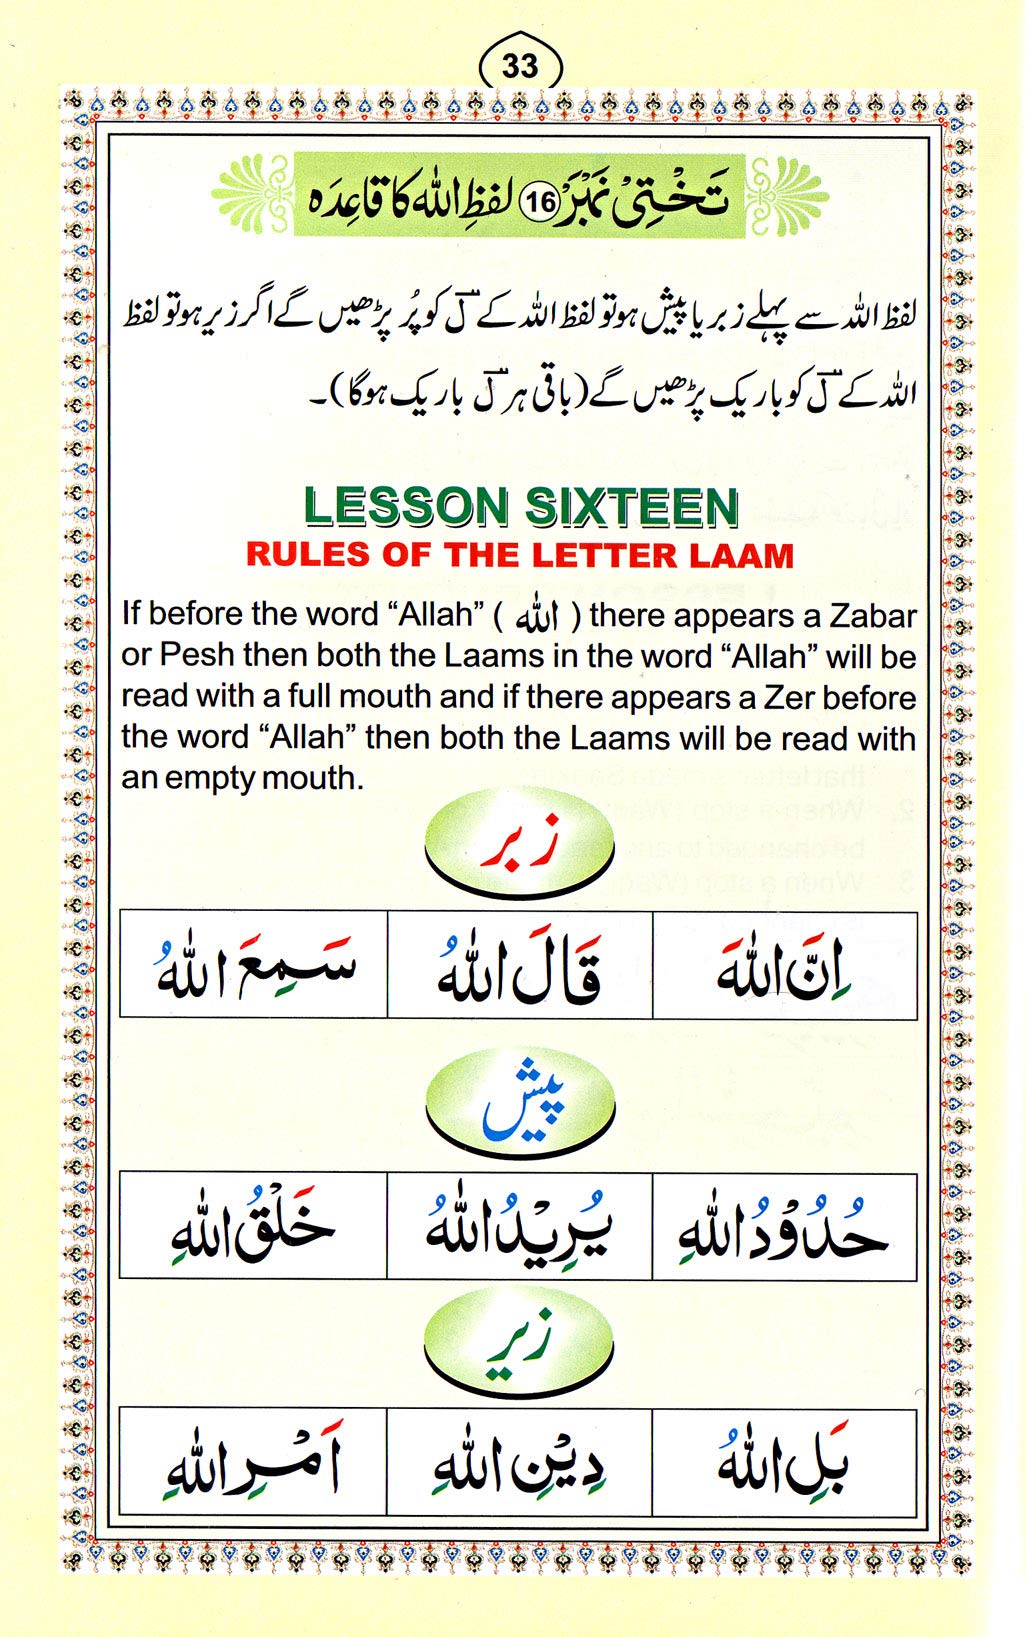 33
تَخْتِیْ نَمْبَرْ 16 لفظِ اللہ کا قاعِدَہ
لفظ اللہ سے پہلے زبر یا پیش ہو تو لفظ اللہ کے لٓ کو پُر پڑھیں گے اگر زیر ہو تو لفظ
اللہ کے لٓ کو باریک پڑھیں گے (باقی ہر لٓ باریک ہوگا)۔
LESSON SIXTEEN
RULES OF THE LETTER LAAM
If before the word “Allah” ( اللہ ) there appears a Zabar
or Pesh then both the Laams in the word “Allah” will be
read with a full mouth and if there appears a Zer before
the word “Allah” then both the Laams will be read with
an empty mouth.
زبر
اِنَّ اللهَ قَالَ اللهُ سَمِعَ اللهُ
پیش
حُدُوْدُ اللهِ يُرِيْدُ اللهُ خَلْقُ اللهِ
زیر
بَلِ اللهُ دِيْنِ اللهِ اَمْرِ اللهِ